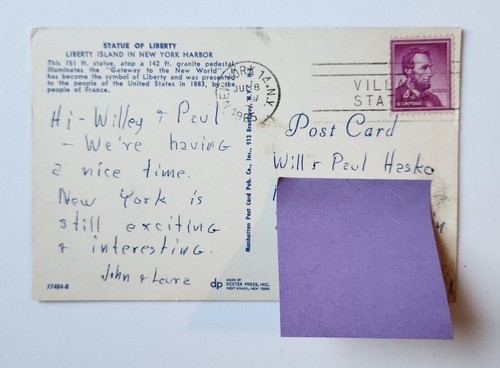 STATUE OF LIBERTY
LIBERTY ISLAND IN NEW YORK HARBOR
This 151 ft. statue, atop a 142 ft. granite pedestal
illuminates the "Gateway to the New World"
has become the symbol of Liberty and was presented
to the people of the United States in 1883, by the
people of France.
Hi - Willey & Paul
- We're having
a nice time.
New York is
still exciting
& interesting.
John & Laura
77404-B
Manhattan Post Card Pub. Co., Inc., 913 Broadway, N.Y.
dp
MADE BY
DEXTER PRESS, INC.
WEST NYACK, NEW YORK
NEW YORK 14, N.Y.
1965
VILL
STA
4¢
Post Card
Will & Paul Haska